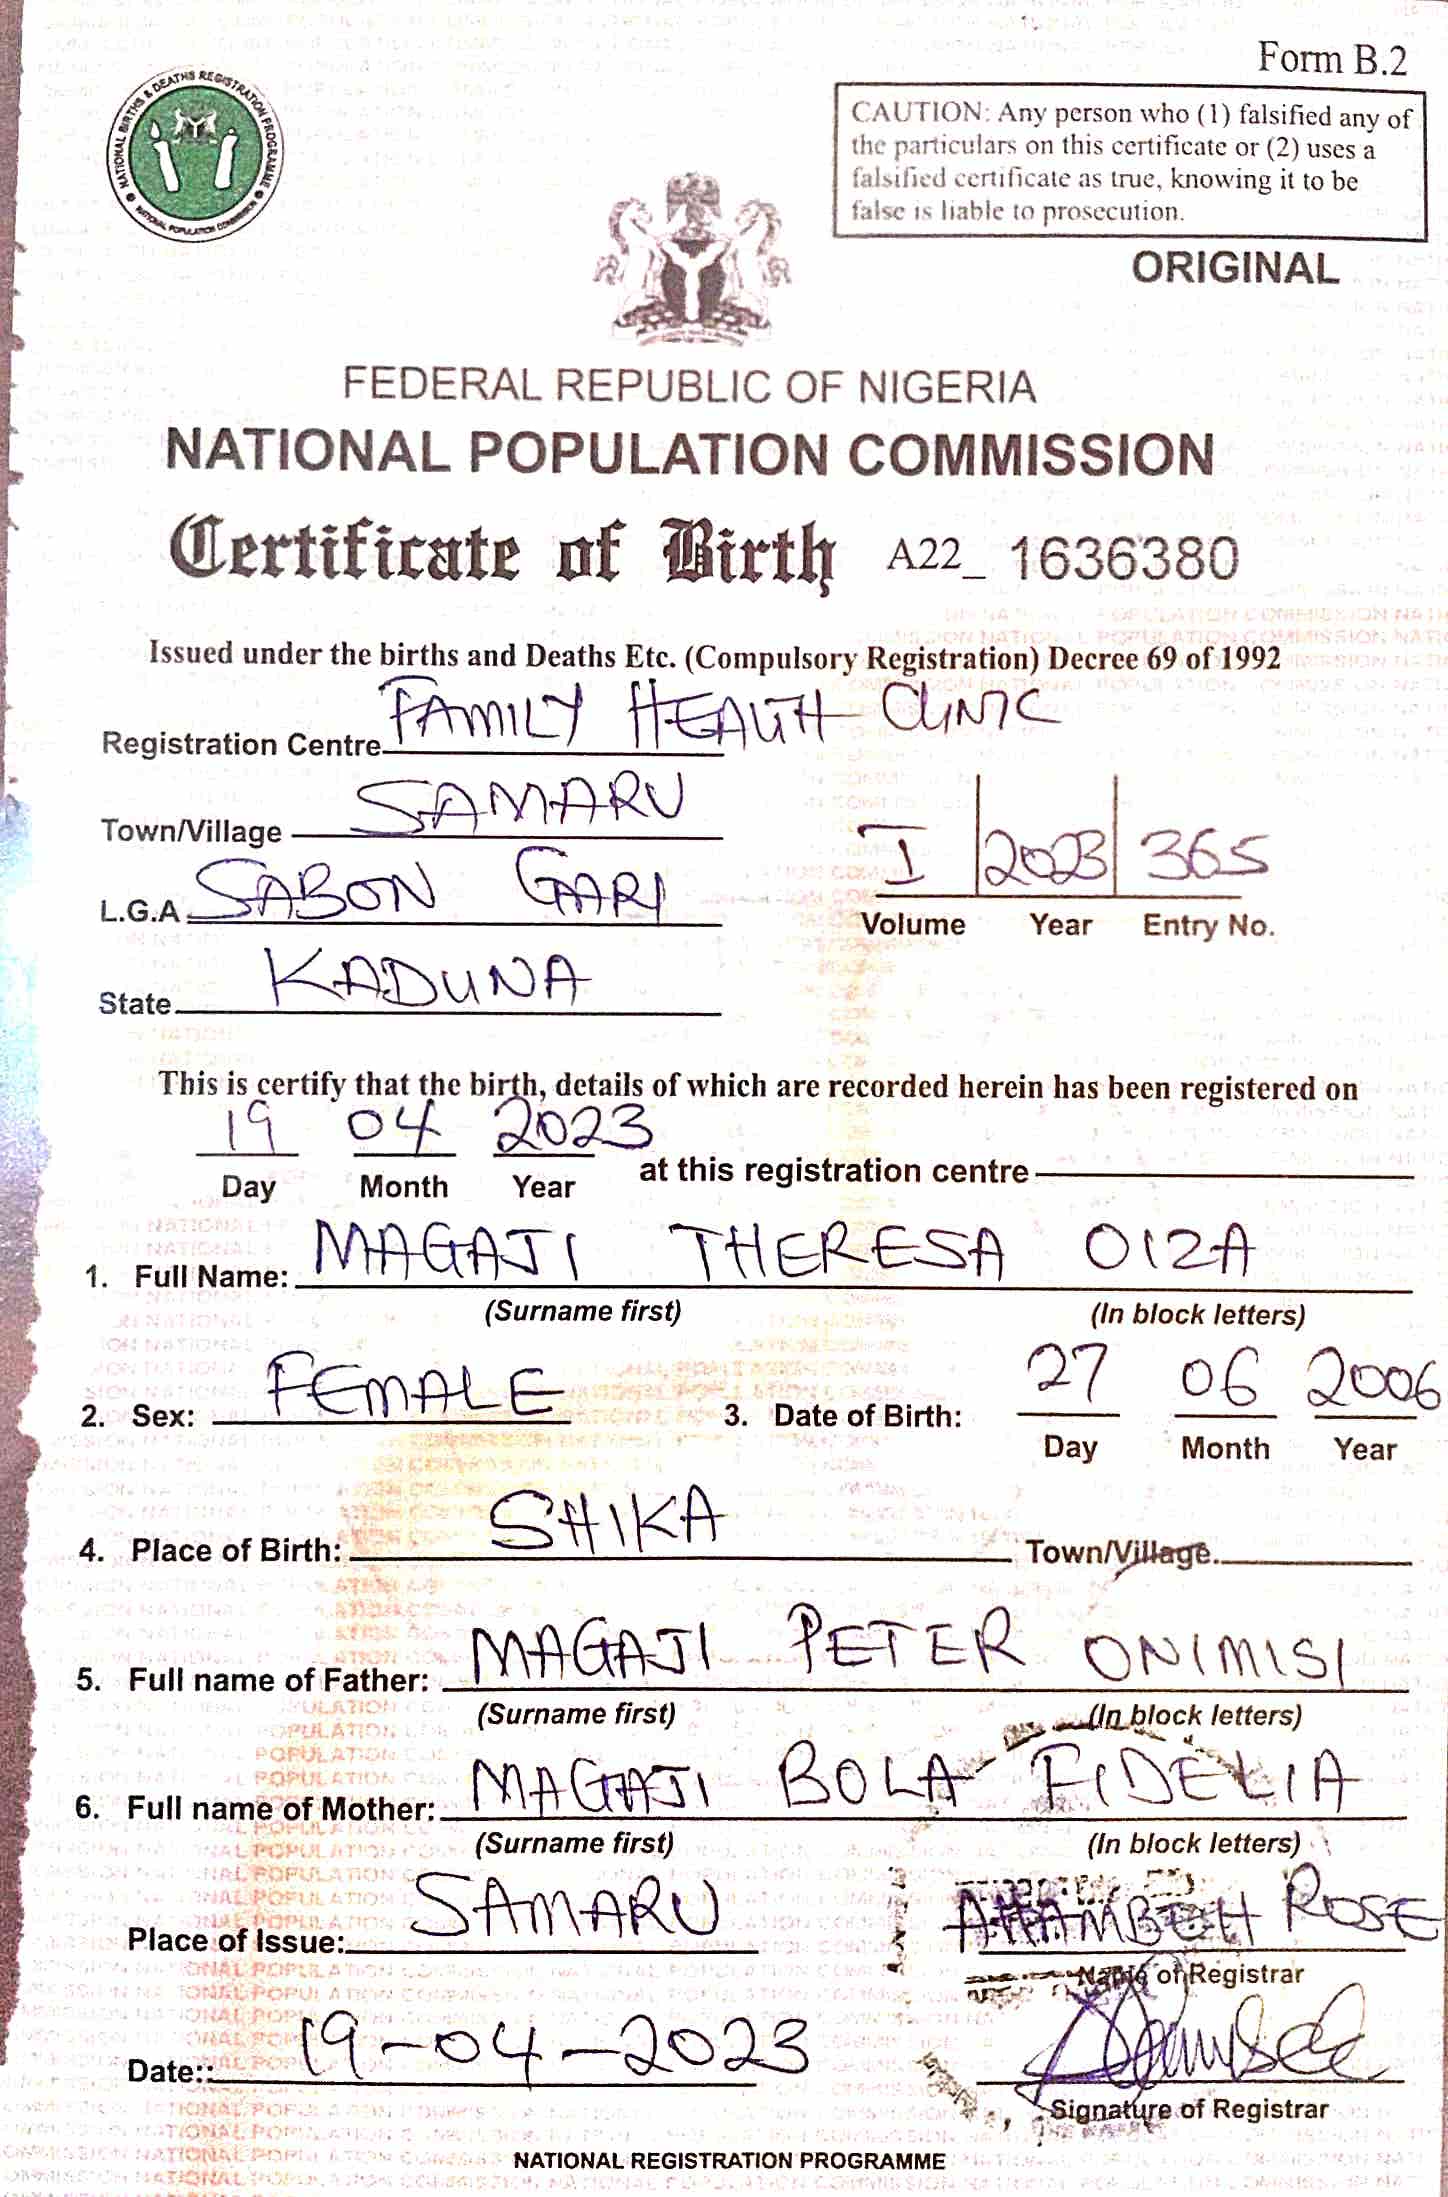 Form B.2
NATIONAL BIRTHS & DEATHS REGISTRATION PROGRAMME
NATIONAL POPULATION COMMISSION
CAUTION: Any person who (1) falsified any of
the particulars on this certificate or (2) uses a
falsified certificate as true, knowing it to be
false is liable to prosecution.
ORIGINAL
FEDERAL REPUBLIC OF NIGERIA
NATIONAL POPULATION COMMISSION
Certificate of Birth A22_ 1636380
Issued under the births and Deaths Etc. (Compulsory Registration) Decree 69 of 1992
Registration Centre FAMILY HEALTH CLINIC
Town/Village SAMARU
I 2023 365
L.G.A SABON GARI
Volume Year Entry No.
State KADUNA
This is certify that the birth, details of which are recorded herein has been registered on
19 04 2023
Day Month Year at this registration centre
1. Full Name: MAGAJI THERESA OIZA
(Surname first) (In block letters)
2. Sex: FEMALE 3. Date of Birth: 27 06 2006
Day Month Year
4. Place of Birth: SHIKA Town/Village.
5. Full name of Father: MAGAJI PETER ONIMISI
(Surname first) (In block letters)
6. Full name of Mother: MAGAJI BOLA FIDELIA
(Surname first) (In block letters)
Place of Issue: SAMARU ROSE
Name of Registrar
Date:: 19-04-2023
Signature of Registrar
NATIONAL REGISTRATION PROGRAMME